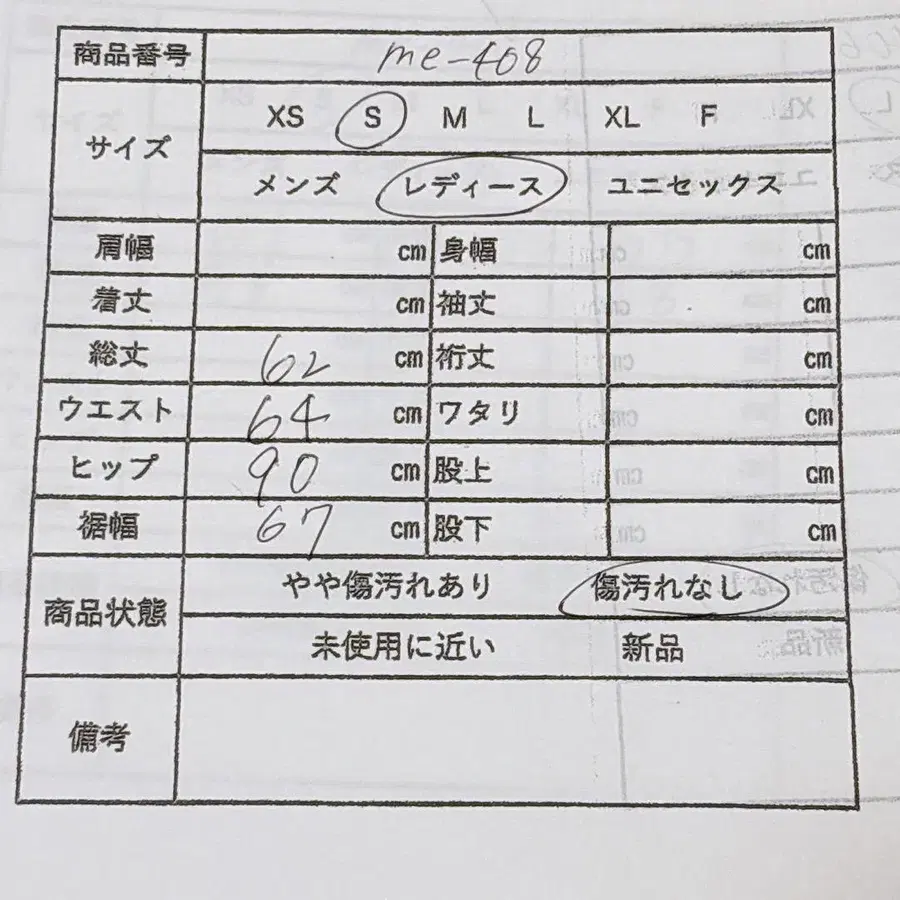 商品番号 me-408
サイズ XS S M L XL F
メンズ レディース ユニセックス
肩幅 cm 身幅 cm
着丈 cm 袖丈 cm
総丈 62 cm 裄丈 cm
ウエスト 64 cm ワタリ cm
ヒップ 90 cm 股上 cm
裾幅 67 cm 股下 cm
商品状態 やや傷汚れあり 傷汚れなし
未使用に近い 新品
備考